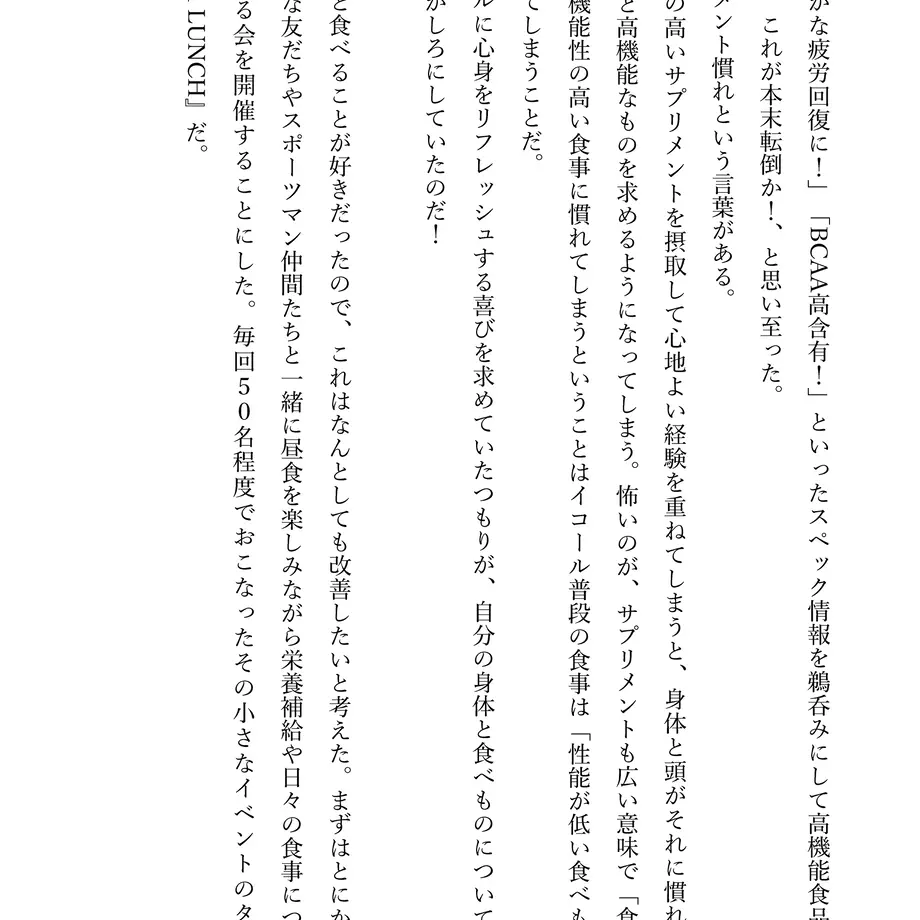 かな疲労回復に！」「BCAA高含有！」といったスペック情報を鵜呑みにして高機能食品
これが本末転倒か！、と思い至った。
メント慣れという言葉がある。
の高いサプリメントを摂取して心地よい経験を重ねてしまうと、身体と頭がそれに慣れ
と高機能なものを求めるようになってしまう。怖いのが、サプリメントも広い意味で「食
機能性の高い食事に慣れてしまうということはイコール普段の食事は「性能が低い食べも
てしまうことだ。
ルに心身をリフレッシュする喜びを求めていたつもりが、自分の身体と食べものについて
がしろにしていたのだ！
と食べることが好きだったので、これはなんとしても改善したいと考えた。まずはとにか
な友だちやスポーツマン仲間たちと一緒に昼食を楽しみながら栄養補給や日々の食事につ
る会を開催することにした。毎回50名程度でおこなったその小さなイベントのタ
LUNCH』だ。